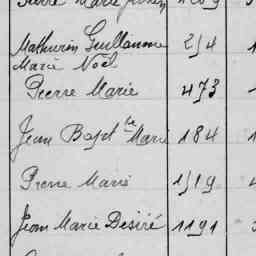 Mathurin Guillaume 254 1
Marie Noël
Pierre Marie 473
Jean Bapt te Marie 184 1
Pierre Marie 1519
Jean Marie Désiré 1191